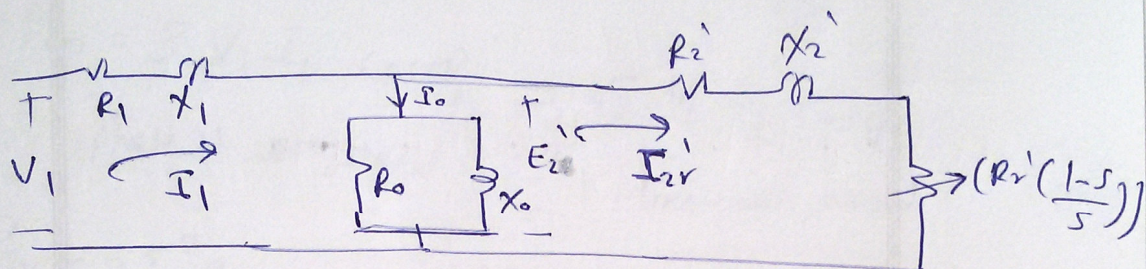 R₂' X₂'
+ R₁ X₁ I₀ +
V₁ I₁ R₀ X₀ E₂' I₂r' (R₂'(1-s/s))
- -